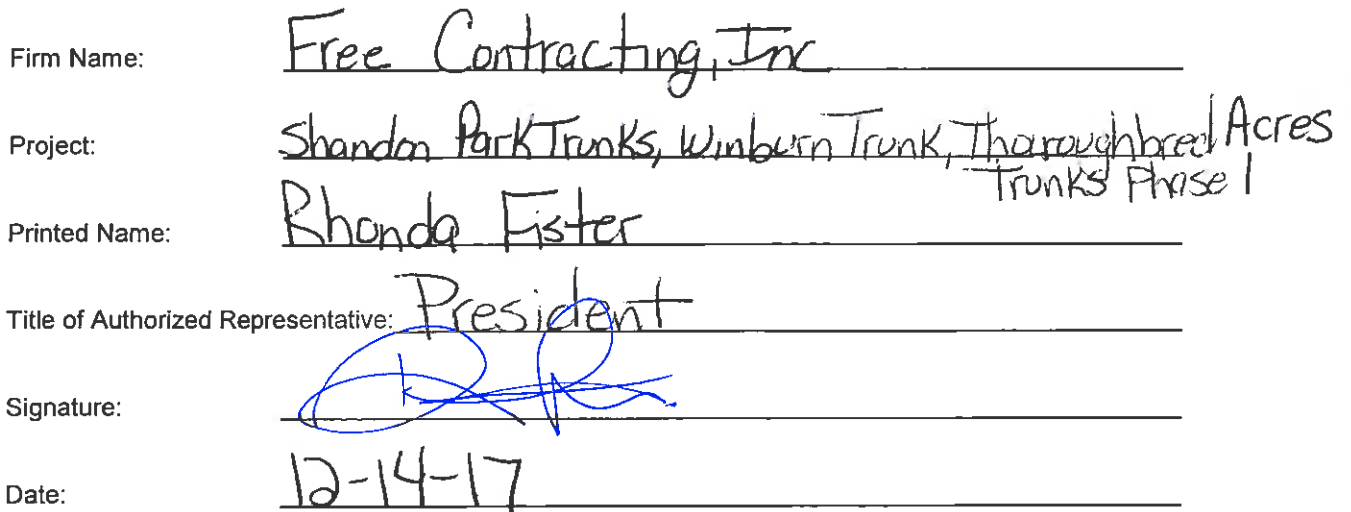 Firm Name: Free Contracting, Inc
Project: Shandon Park Trunks, Winburn Trunk, Thoroughbred Acres
Trunks Phase 1
Printed Name: Rhonda Fister
Title of Authorized Representative: President
Signature:
Date: 12-14-17